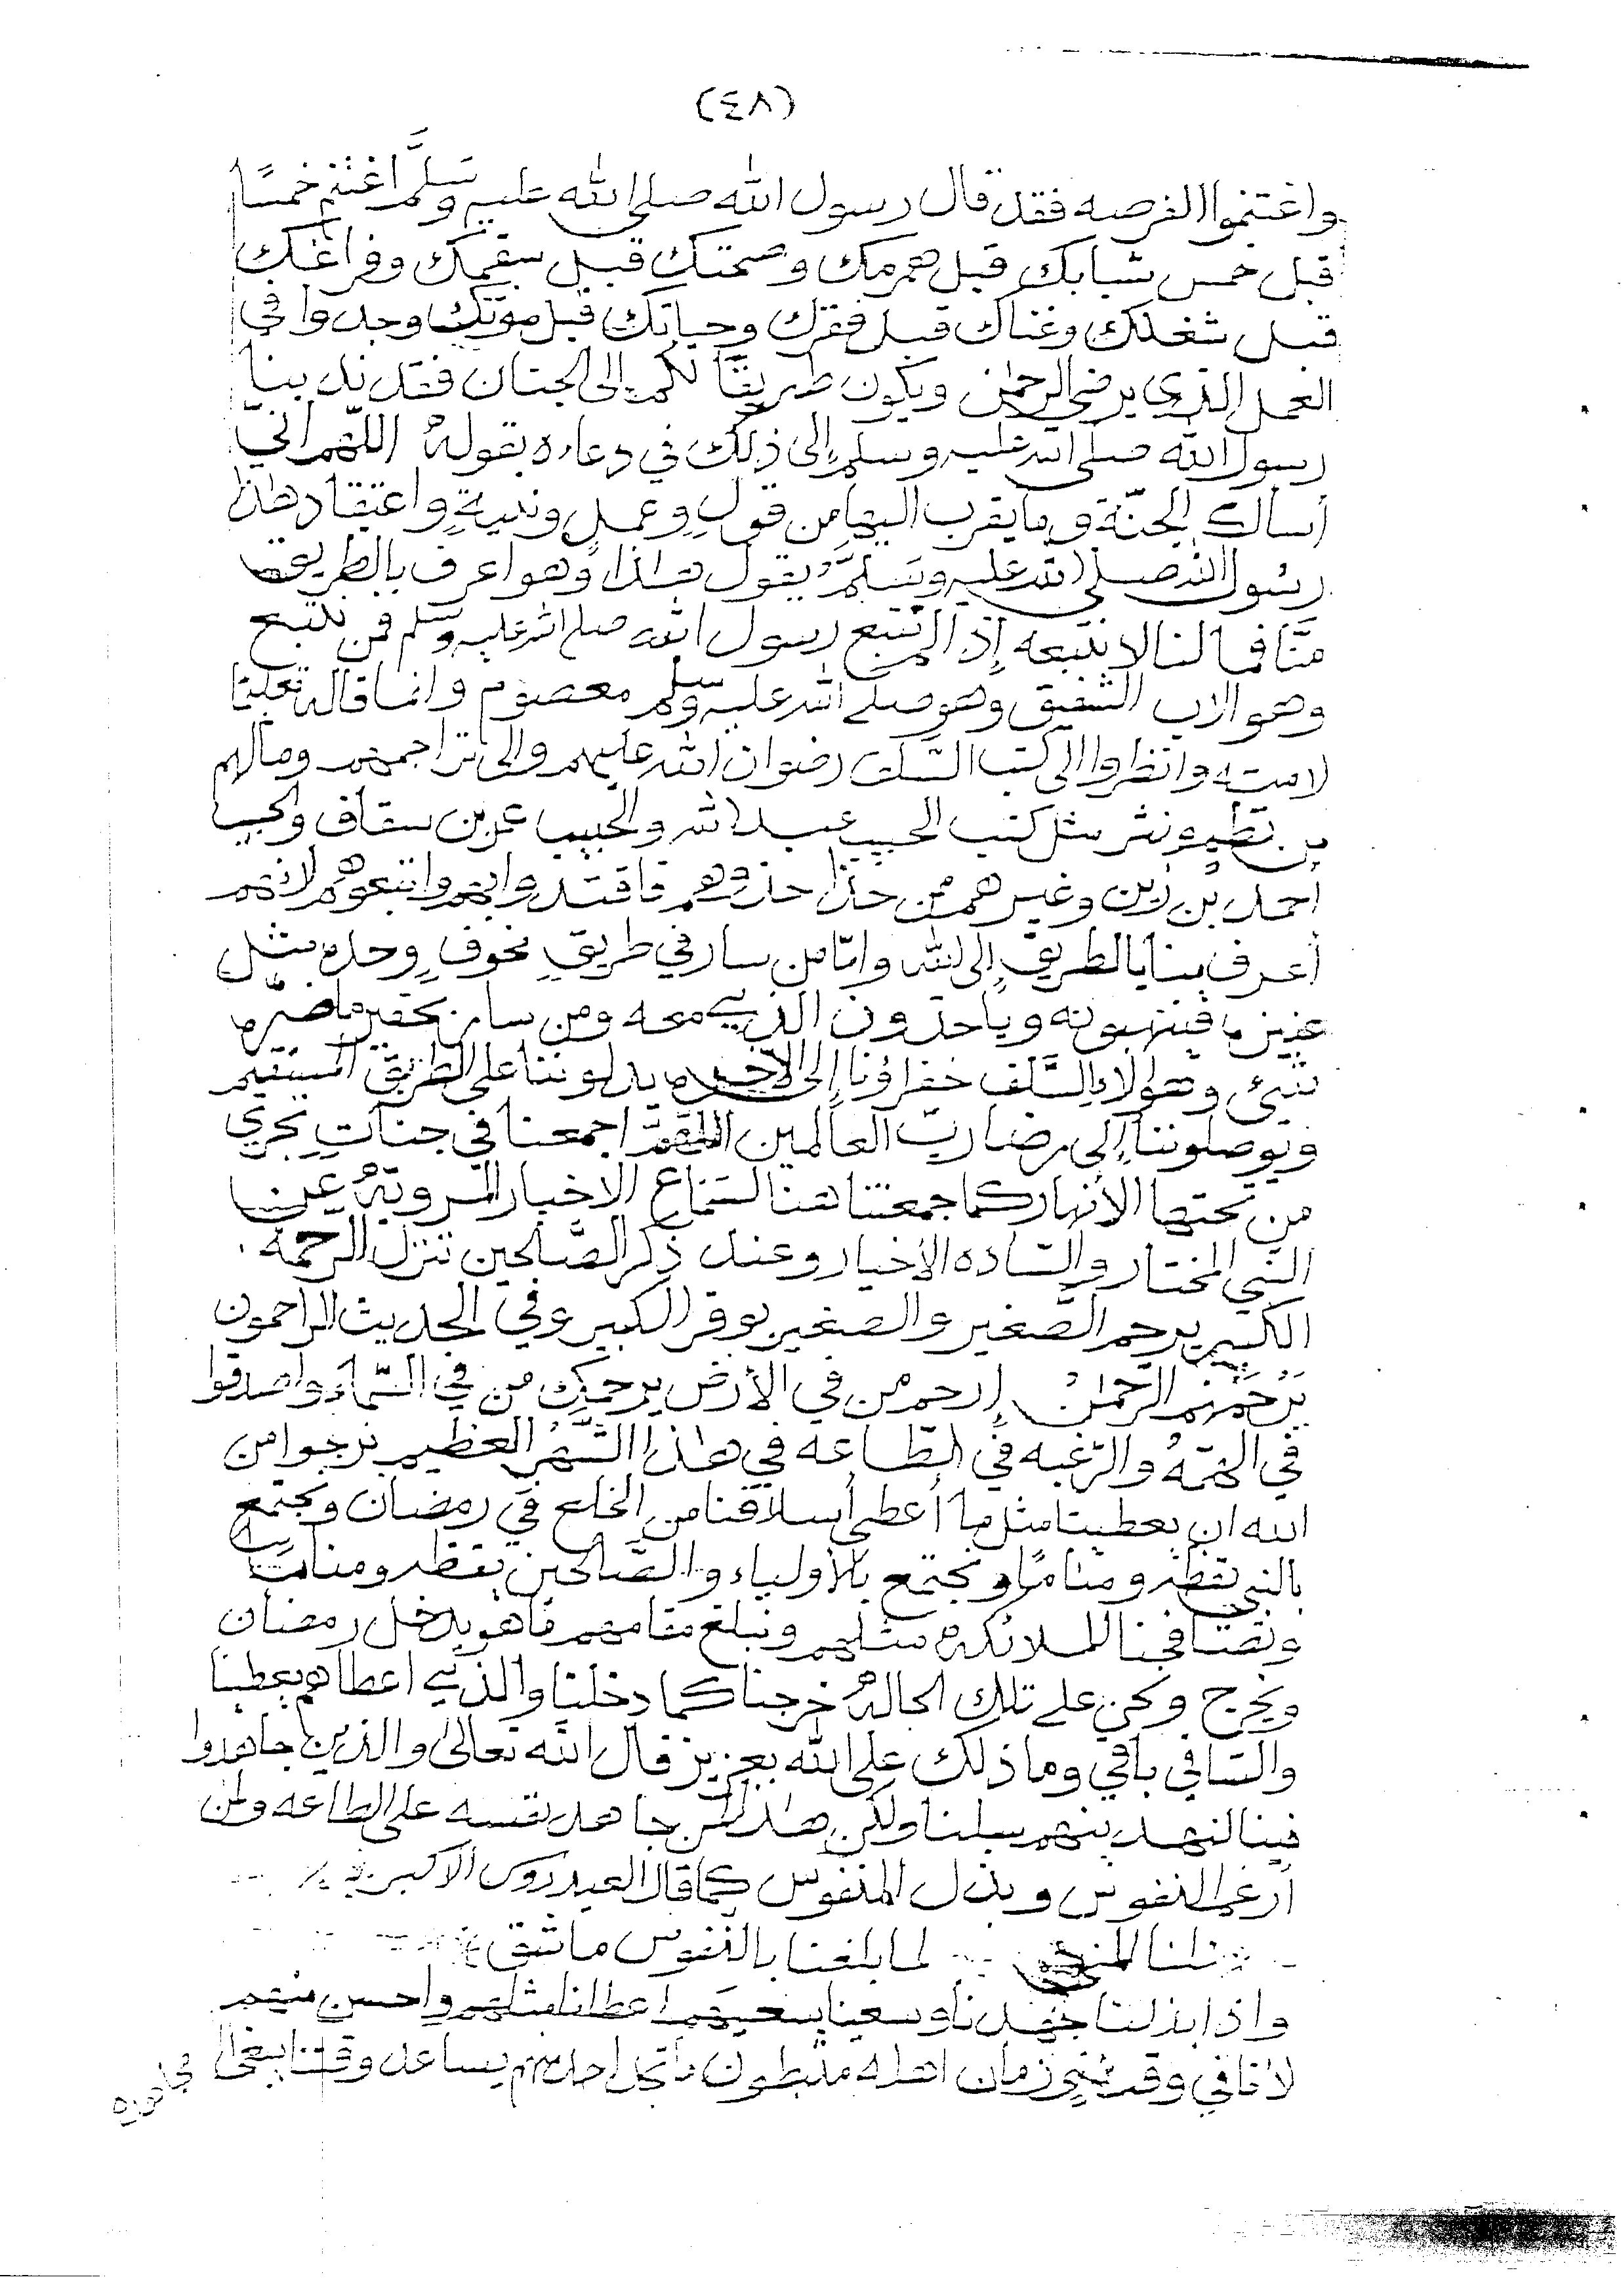 (٤٨)
واغتنموا الفرصه فقد قال رسول الله صلى الله عليه وسلَّم اغتنم خمسًا
قبل خمس شبابك قبل هرمك وصحتك قبل سقمك وفراغك
قبل شغلك وغناك قبل فقرك وحياتك قبل موتك وجدوا في
العمل الذي يرضي الرحمٰن ويكون طريقًا لكم إلى الجنان فقد ندبنا
رسول الله صلى الله عليه وسلم إلى ذلك في دعاءه بقوله اللّهم انّي
أسألك الجنّة وما يقرب اليها من قولٍ وعملٍ ونيةٍ واعتقاد هٰذا
رسُول الله صلى الله عليه وسَلَّم يقول هٰذا وهو اعرف بالطريق
منَّا فما لنا لا نتبعه إذا لم نتبع رسول الله صلى الله عليه وسلم فمن نتبع
وهو الاب الشفيق وهو صلى الله عليه وسلم معصوم وانما قاله تعليمًا
لامته وانظروا الى كتب السّلف رضوان الله عليهم والى تراجمهم ومالهم
من نظم ونثر مثل كتب الحبيب عبد الله والحبيب عمر بن سقاف والحبيب
احمد بن زين وغيرهم ممن حذا حذوهم فاقتدوا بهم واتبعوهم لانهم
أعرف منا بالطريق إلى الله وامّا من سار في طريقٍ مخوفٍ وحده مثل
فينهبونه ويأخذون الذي معه ومن سار بخفير ما ضرّه
شيئ وهؤلاء السَّلف خفراؤنا إلى الآخره يدلوننا على الطريق المستقيم
ويوصلوننا إلى رضا ربّ العالمين اللهم اجمعنا في جناتٍ تجري
من تحتها الأنهار كما جمعتنا هنا لسماع الاخبار المرويّة عن
النبي المختار والسّاده الأخيار وعند ذكر الصَّالحين تنزل الرحمة .
الكبير يرحم الصَّغير والصغير يوقر الكبير وفي الحديث الراحمون
يَرْحَمُهم الرّحمٰنُ إرحم من في الأرض يرحمك من في السّماء واصدقوا
في الهمّه والرّغبه في الطّاعه في هٰذا الشَّهر العظيم نرجوا من
الله ان يعطينا مثل ما أعطى أسلافنا من الخلع في رمضان ونجتمع
بالنبي يقظه ومنامًا ونجتمع بالأولياء والصَّالحين يقظه ومنامًا
وتصافحنا الملائكة مثلهم ونبلغ مقامهم ماهو يدخل رمضان
ويخرج ونحن على تلك الحالة خرجنا كما دخلنا والذي اعطاهم يعطينا
والسّاقي باقي وما ذلك على الله بعزيز قال الله تعالى والذين جاهدوا
فينا لنهدينهم سبلنا ولكن هٰذا لمن جاهد نفسه على الطاعه ولمن
أرغم النفوس وبذل المنفوس كما قال العيدروس الاكبر
نلنا المنى لما بلغنا بالنفوس ما شق
واذا بذلنا جهدنا وسعينا سعيهم اعطانا مثلهم واحسن منهم
لأننا في وقت وفي زمان اهله مثبطون ما تجد احد منهم يساعد وقتنا يبغى
مجاهده